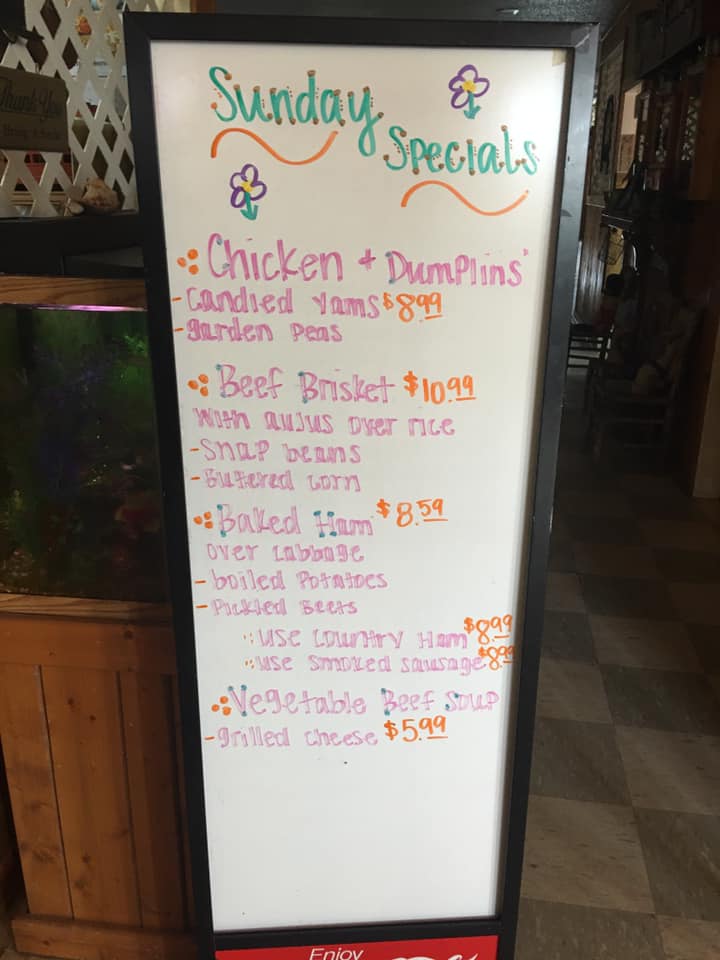 Thank You
Sunday
Specials
Chicken + Dumplins'
- Candied Yams $8.99
- garden Peas
Beef Brisket $10.99
With aujus over rice
- Snap beans
- Butered corn
Baked Ham $8.59
over cabbage
- boiled Potatoes
- Pickled Beets
use country Ham $8.99
use smoked sausage $8.99
Vegetable Beef Soup
- grilled cheese $5.99
Enjoy